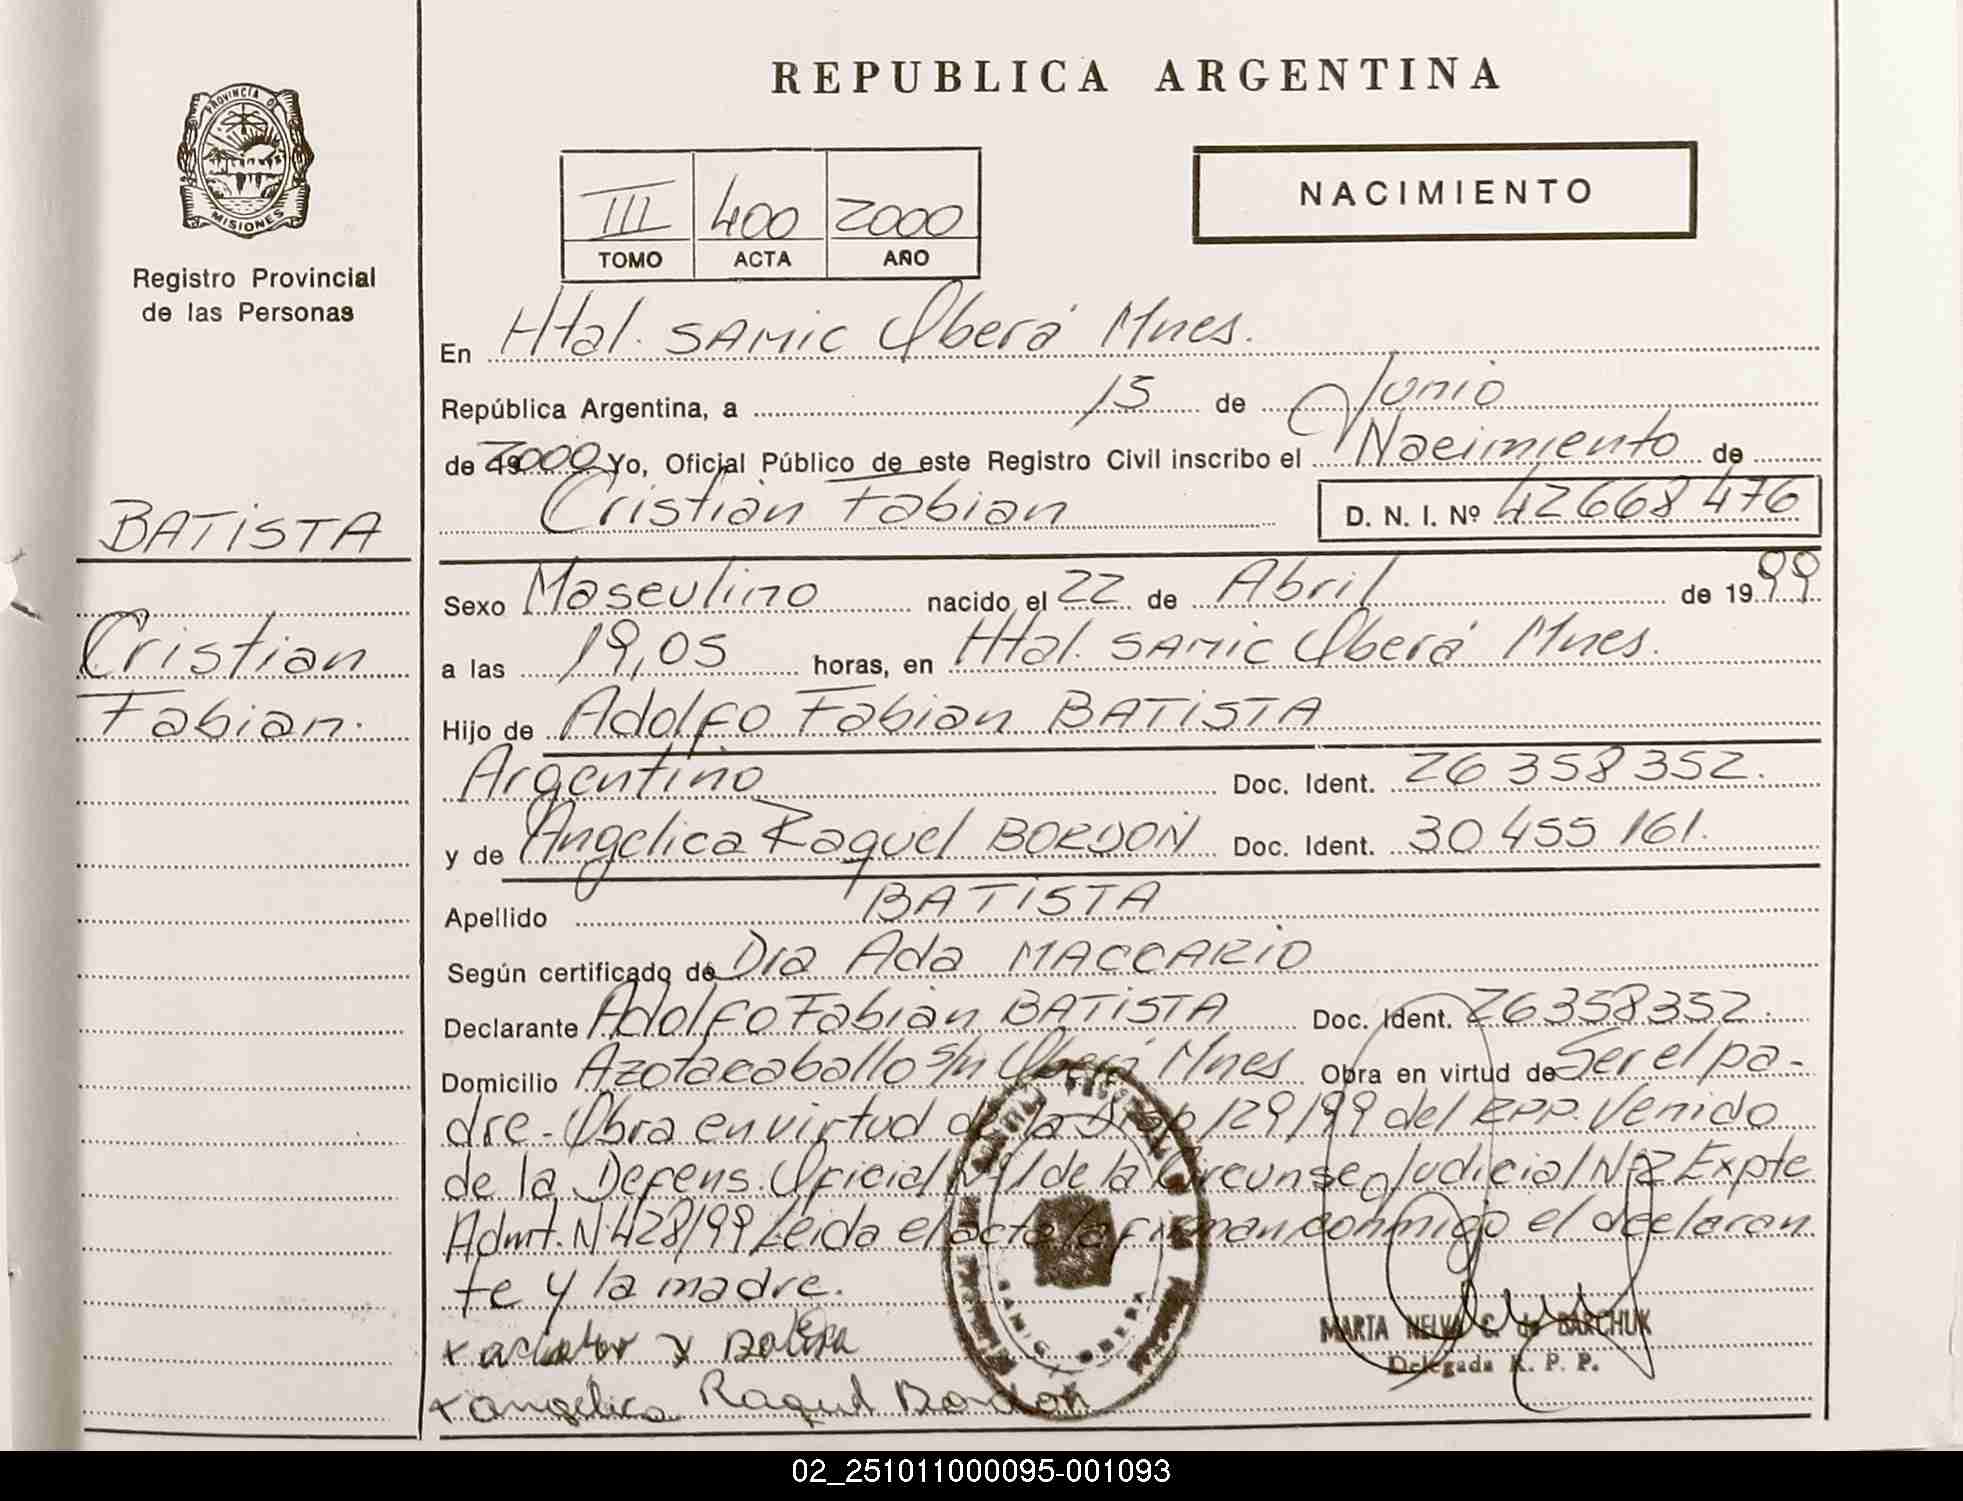 REPUBLICA ARGENTINA
PROVINCIA DE
MISIONES
Registro Provincial
de las Personas
III 400 2000
TOMO ACTA AÑO
NACIMIENTO
En Htal. SAMIC Oberá Mnes.
República Argentina, a 15 de Junio
de 2000 Yo, Oficial Público de este Registro Civil inscribo el Nacimiento de
Cristian Fabian D. N. I. Nº 42668476
BATISTA
Cristian
Fabian.
Sexo Masculino nacido el 22 de Abril de 1999
a las 19,05 horas, en Htal. SAMIC Oberá Mnes.
Hijo de Adolfo Fabian BATISTA
Argentino Doc. Ident. 26358352.
y de Angelica Raquel BORDON Doc. Ident. 30455161.
Apellido BATISTA
Según certificado de Dra Ada MACCARIO
Declarante Adolfo Fabian BATISTA Doc. Ident. 26358352.
Domicilio Azotacaballo s/n Oberá Mnes Obra en virtud de Ser el pa-
dre. Obra en virtud de la Disp 129/99 del RPP. Venido
de la Defens. Oficial Nº1 de la Circunsc Judicial Nº2 Expte
Admt. Nº428/99 Leida el acta la firman conmigo el declaran
te y la madre.
x
x angelica Raquel Bordon
SAMIC OBERA
MARTA NELVA C. de BARCHUK
Delegada R. P. P.
02_251011000095-001093